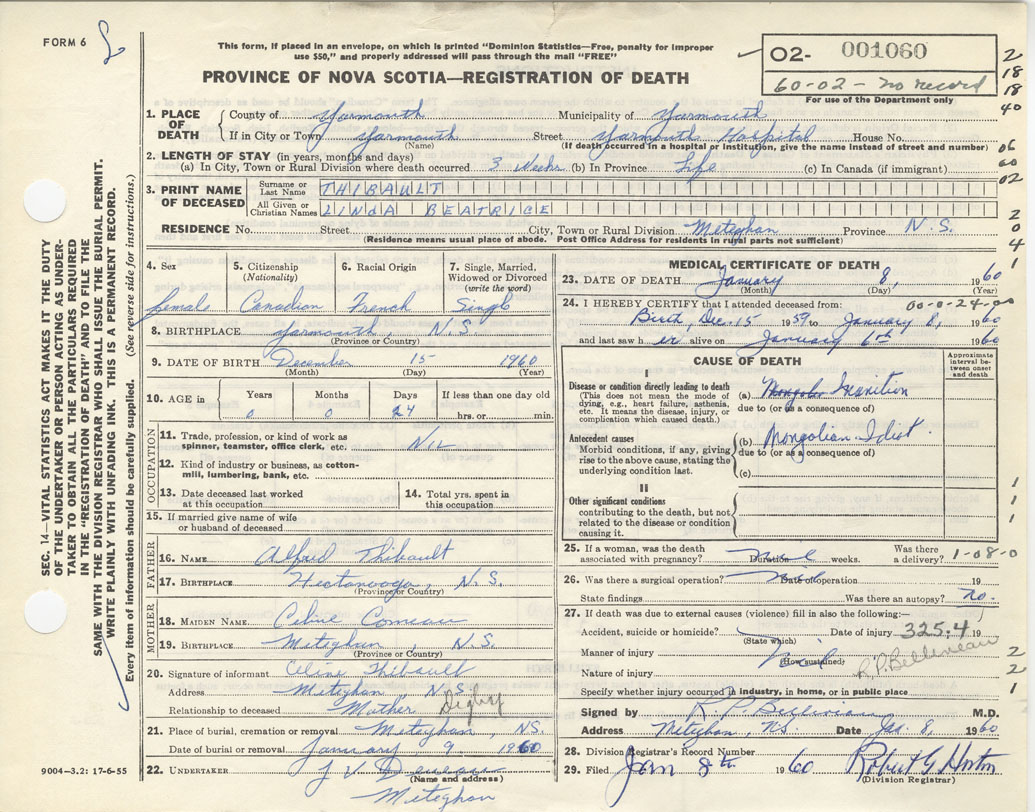 FORM 6
This form, if placed in an envelope, on which is printed "Dominion Statistics—Free, penalty for improper
use $50," and properly addressed will pass through the mail "FREE"
PROVINCE OF NOVA SCOTIA—REGISTRATION OF DEATH
O2- 001060
60-02 - no record
For use of the Department only
2
18
18
40
06
02
2
0
4
1
SEC. 14—VITAL STATISTICS ACT MAKES IT THE DUTY
OF THE UNDERTAKER OR PERSON ACTING AS UNDER-
TAKER TO OBTAIN ALL THE PARTICULARS REQUIRED
IN THE "REGISTRATION OF DEATH" AND TO FILE THE
SAME WITH THE DIVISION REGISTRAR WHO SHALL ISSUE THE BURIAL PERMIT.
WRITE PLAINLY WITH UNFADING INK. THIS IS A PERMANENT RECORD.
Every item of information should be carefully supplied. (See reverse side for instructions.)
1. PLACE OF DEATH
County of Yarmouth Municipality of Yarmouth
If in City or Town Yarmouth Street Yarmouth Hospital House No.
(Name) (If death occurred in a hospital or institution, give the name instead of street and number)
2. LENGTH OF STAY (in years, months and days)
(a) In City, Town or Rural Division where death occurred 3 Weeks (b) In Province Life (c) In Canada (if immigrant)
3. PRINT NAME OF DECEASED
Surname or Last Name THIBAULT
All Given or Christian Names LINDA BEATRICE
RESIDENCE No. Street City, Town or Rural Division Meteghan Province N.S.
(Residence means usual place of abode. Post Office Address for residents in rural parts not sufficient)
4. Sex
female
5. Citizenship (Nationality)
Canadian
6. Racial Origin
French
7. Single, Married, Widowed or Divorced (write the word)
Single
8. BIRTHPLACE Yarmouth N.S.
(Province or Country)
9. DATE OF BIRTH December 15 1960
(Month) (Day) (Year)
10. AGE in Years Months Days If less than one day old
0 0 24 hrs. or min.
OCCUPATION
11. Trade, profession, or kind of work as
spinner, teamster, office clerk, etc. Nil
12. Kind of industry or business, as cotton-
mill, lumbering, bank, etc.
13. Date deceased last worked
at this occupation
14. Total yrs. spent in
this occupation
15. If married give name of wife
or husband of deceased
FATHER
16. NAME Alfred Thibault
17. BIRTHPLACE Hectanooga, N.S.
(Province or Country)
MOTHER
18. MAIDEN NAME Celine Comeau
19. BIRTHPLACE Meteghan, N.S.
(Province or Country)
20. Signature of informant Celine Thibault
Address Meteghan, N.S. Digby
Relationship to deceased Mother
21. Place of burial, cremation or removal Meteghan, N.S.
Date of burial or removal January 9 1960
22. UNDERTAKER J V
(Name and address)
Meteghan
9004—3.2: 17-6-55
MEDICAL CERTIFICATE OF DEATH
23. DATE OF DEATH January 8, 1960
(Month) (Day) (Year)
24. I HEREBY CERTIFY that I attended deceased from: 00-0-24-00
Birth, Dec. 15 1959 to January 8, 1960
and last saw her alive on January 6th 1960
CAUSE OF DEATH
Approximate interval between onset and death
I
Disease or condition directly leading to death
(This does not mean the mode of
dying, e.g., heart failure, asthenia,
etc. It means the disease, injury, or
complication which caused death.)
(a) Mongolian Inanition
due to (or as a consequence of)
Antecedent causes
Morbid conditions, if any, giving
rise to the above cause, stating the
underlying condition last.
(b) Mongolian Idiot.
due to (or as a consequence of)
(c)
II
Other significant conditions
contributing to the death, but not
related to the disease or condition
causing it.
1
1
1
25. If a woman, was the death
associated with pregnancy? Nil Duration weeks. Was there
a delivery? 1-08-0
26. Was there a surgical operation? Nil Date of operation 19
State findings Was there an autopsy? no.
27. If death was due to external causes (violence) fill in also the following:—
Accident, suicide or homicide? Date of injury 325.4 19
(State which)
Manner of injury Nil
(How sustained)
Nature of injury R.P. Belliveau
2
2
Specify whether injury occurred in industry, in home, or in public place
1
Signed by R. P. Belliveau M.D.
Address Meteghan, N.S. Date Jan. 8, 1960
28. Division Registrar's Record Number
29. Filed Jan 8th 1960 Robert G Horton
(Division Registrar)